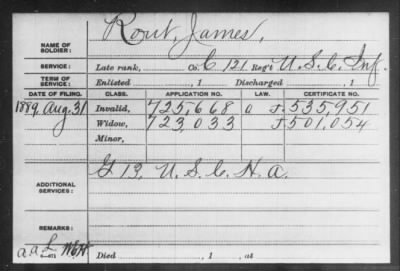 Rout, James,
NAME OF SOLDIER:
SERVICE: Late rank, Co. C 121 Reg't U.S.C. Inf.
TERM OF SERVICE: Enlisted , 1 Discharged , 1
DATE OF FILING. CLASS. APPLICATION NO. LAW. CERTIFICATE NO.
1889, Aug. 31 Invalid, 725,668 535,951
Widow, 723,033 501,054
Minor,
G 13, U.S.C. H.A.
ADDITIONAL SERVICES:
REMARKS:
Died , 1 , at